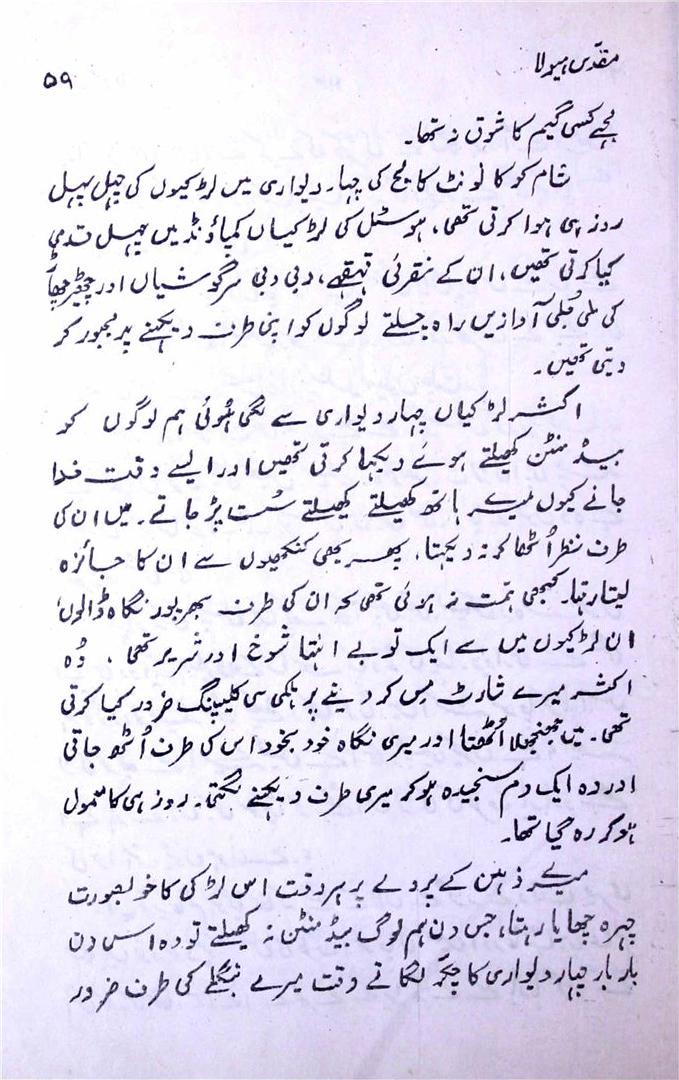 مقدّس ہیولا
۵۹
مجھے کسی گیم کا شوق نہ تھا۔
شام کو کانونٹ کالج کی چہار دیواری میں لڑکیوں کی چہل پہل
روز ہی ہوا کرتی تھی، ہوسٹل کی لڑکیاں کمپاؤنڈ میں چہل قدمی
کیا کرتی تھیں، ان کے نقرئی قہقہے، دبی دبی سرگوشیاں اور چھیڑ چھاڑ
کی ملی جُلی آوازیں راہ چلتے لوگوں کو اپنی طرف دیکھنے پر مجبور کر
دیتی تھیں۔
اکثر لڑکیاں چہار دیواری سے لگی ہُوئی ہم لوگوں کو
بیڈ منٹن کھیلتے ہوئے دیکھا کرتی تھیں اور ایسے وقت خدا
جانے کیوں میرے ہاتھ کھیلتے کھیلتے سُست پڑ جاتے۔ میں ان کی
طرف نظر اُٹھا کر نہ دیکھتا، پھر بھی کنکھیوں سے ان کا جائزہ
لیتا رہتا۔ کبھی ہمّت نہ ہوئی تھی کہ ان کی طرف بھرپور نگاہ ڈالوں،
ان لڑکیوں میں سے ایک تو بے انتہا شوخ اور شریر تھی، وُہ
اکثر میرے شارٹ مِس کر دینے پر ہلکی سی کلیپنگ ضرور کیا کرتی
تھی۔ میں جھنجھلا اُٹھتا اور میری نگاہ خود بخود اس کی طرف اُٹھ جاتی
اور وہ ایک دم سنجیدہ ہو کر میری طرف دیکھنے لگتی۔ روز ہی کا معمول
ہو کر رہ گیا تھا۔
میرے ذہن کے پردے پر ہر وقت اس لڑکی کا خوبصورت
چہرہ چھایا رہتا، جس دن ہم لوگ بیڈ منٹن نہ کھیلتے تو وہ اس دن
بار بار چہار دیواری کا چکّر لگاتے وقت میرے بنگلے کی طرف ضرور